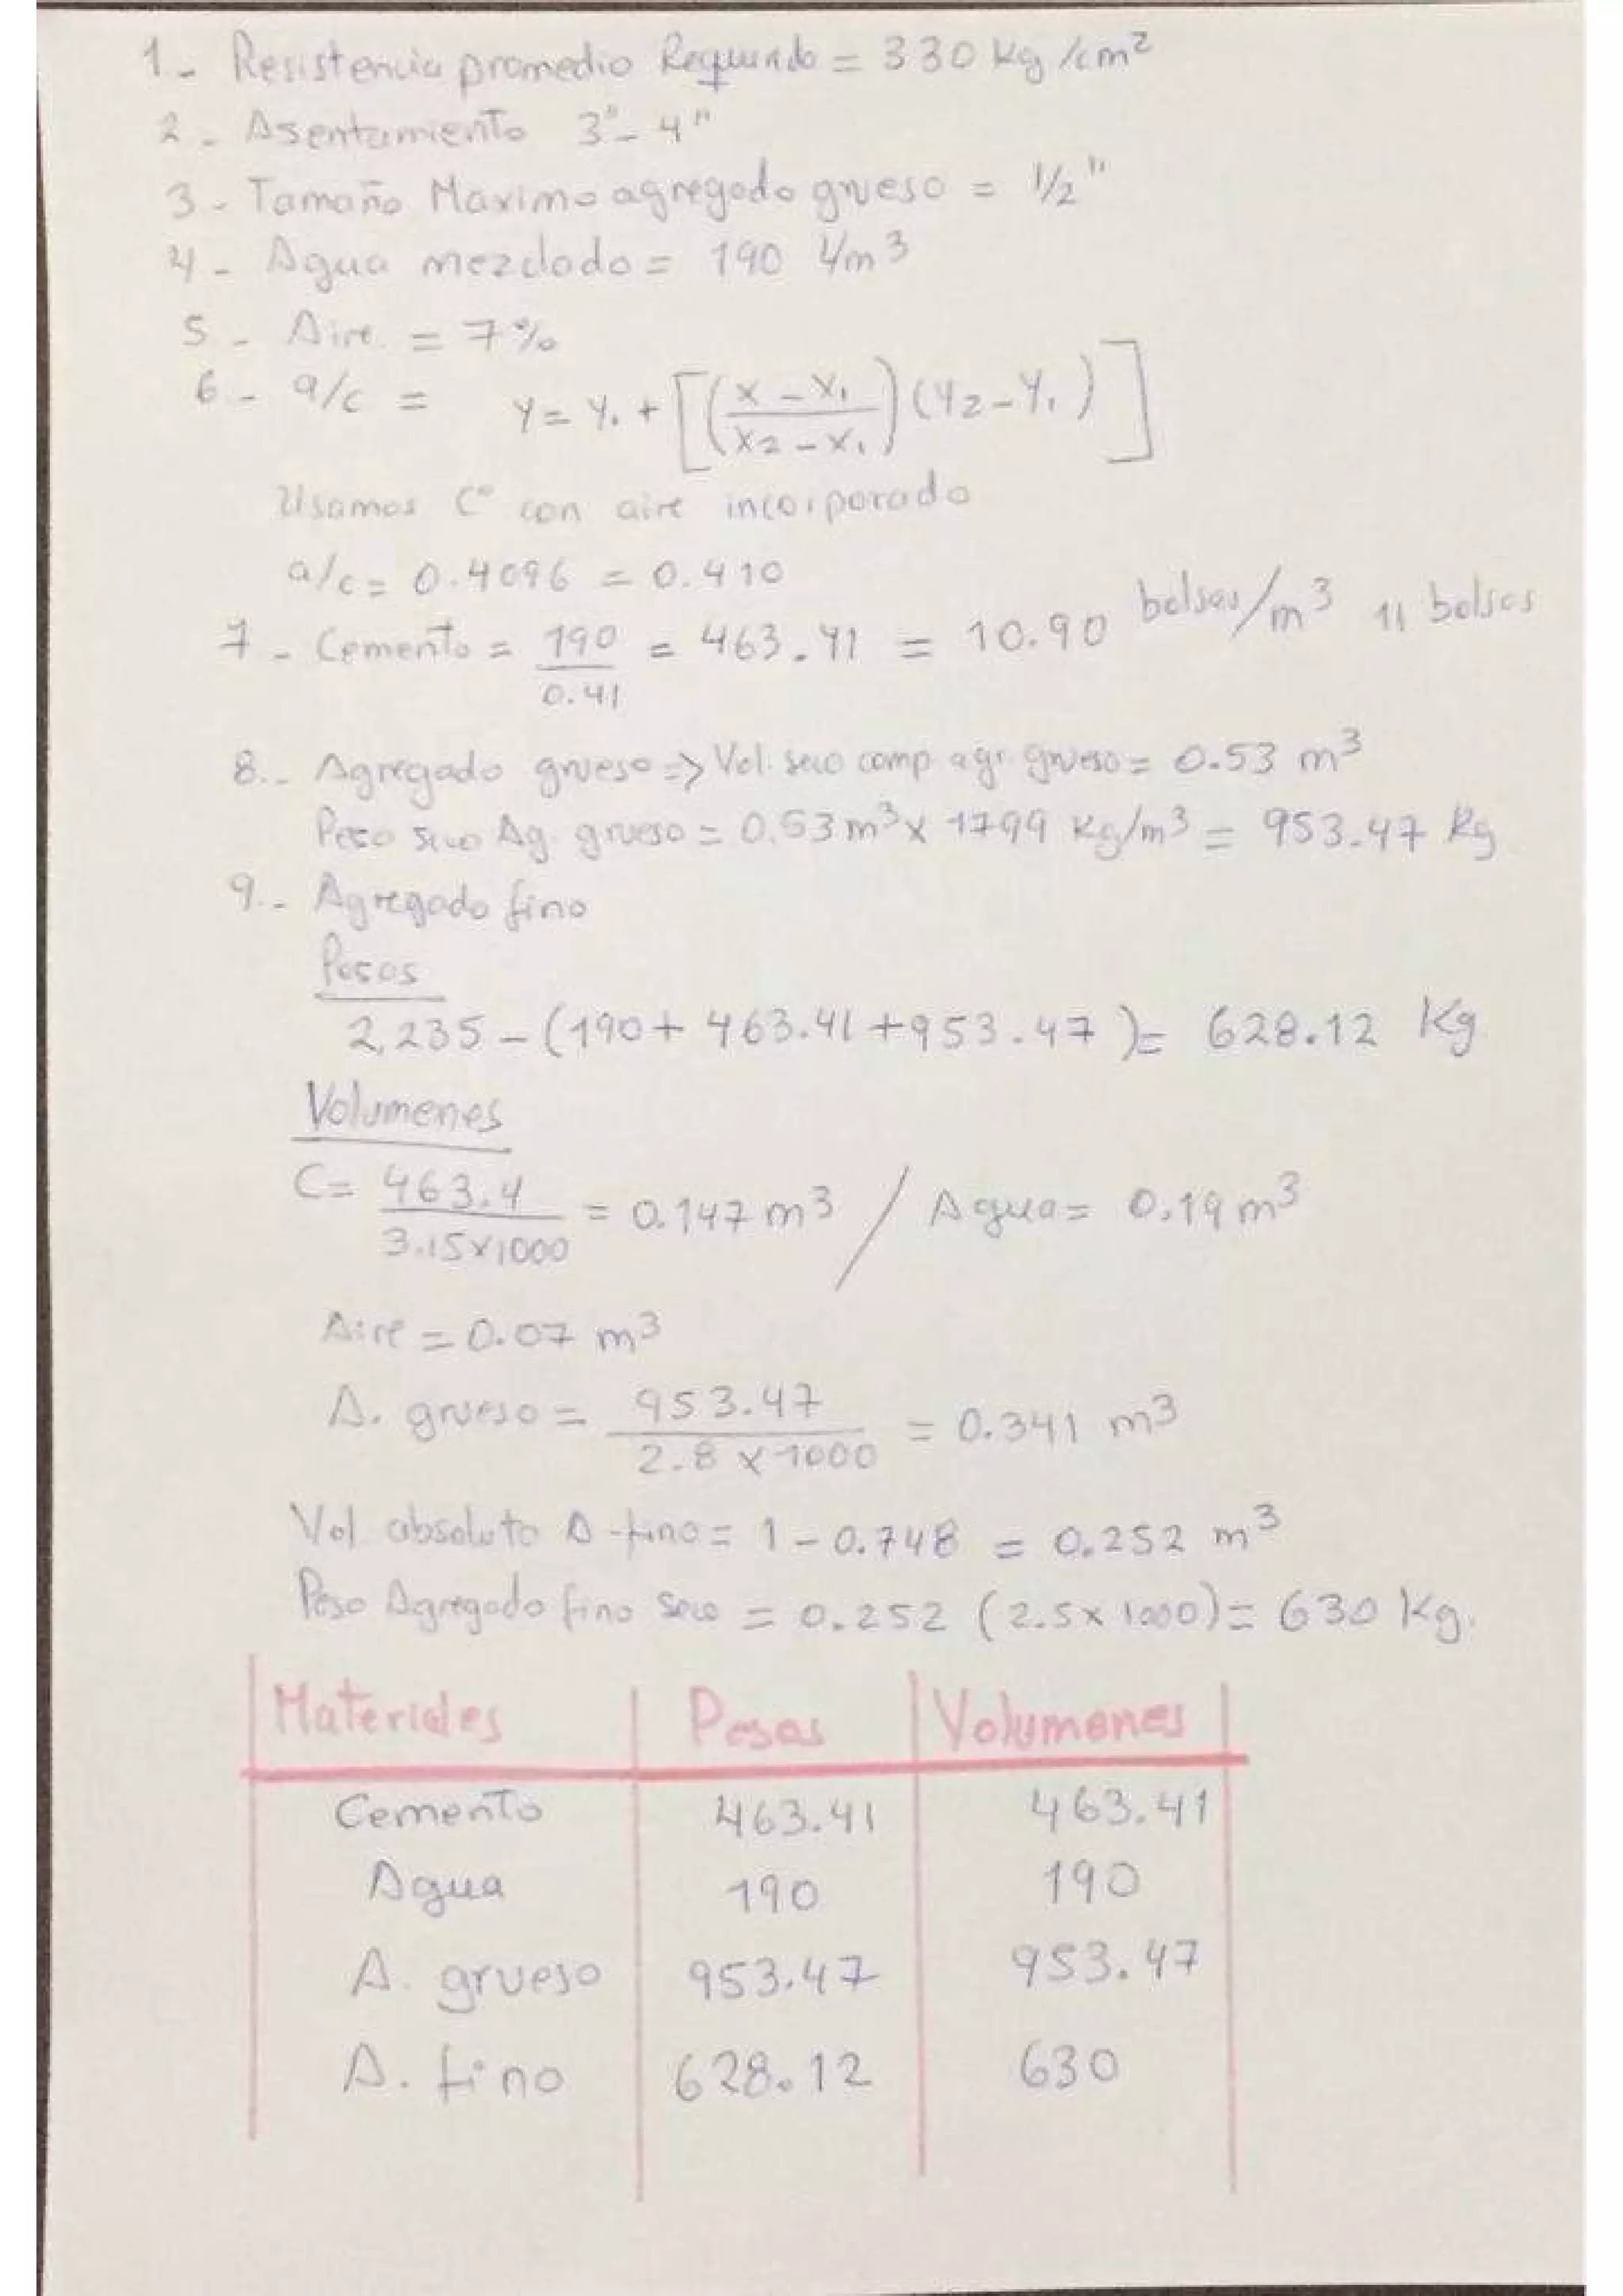 1- Resistencia promedio Requerido = 330 Kg/cm²
2- Asentamiento 3"- 4"
3- Tamaño Maximo agregado grueso = 1/2"
4- Agua mezclado = 190 l/m³
5- Aire = 7%
6- a/c = y = y₁ + [((x - x₁)/(x₂ - x₁))(y₂ - y₁)]
Usamos C° con aire incorporado
a/c = 0.4096 = 0.410
7- Cemento = 190/0.41 = 463.41 = 10.90 bolsas/m³ 11 bolsas
8.- Agregado grueso => Vol. seco comp. agr. grueso = 0.53 m³
Peso seco Ag. grueso = 0.53 m³ x 1799 Kg/m³ = 953.47 Kg
9.- Agregado fino
Pesos
2,235 - (190 + 463.41 + 953.47) = 628.12 Kg
Volumenes
C = 463.4/3.15x1000 = 0.147 m³ / Agua = 0.19 m³
Aire = 0.07 m³
A. grueso = 953.47/2.8 x 1000 = 0.341 m³
Vol absoluto A. fino = 1 - 0.748 = 0.252 m³
Peso Agregado fino seco = 0.252 (2.5x1000) = 630 Kg.
Materiales Pesos Volumenes
Cemento 463.41 463.41
Agua 190 190
A. grueso 953.47 953.47
A. fino 628.12 630